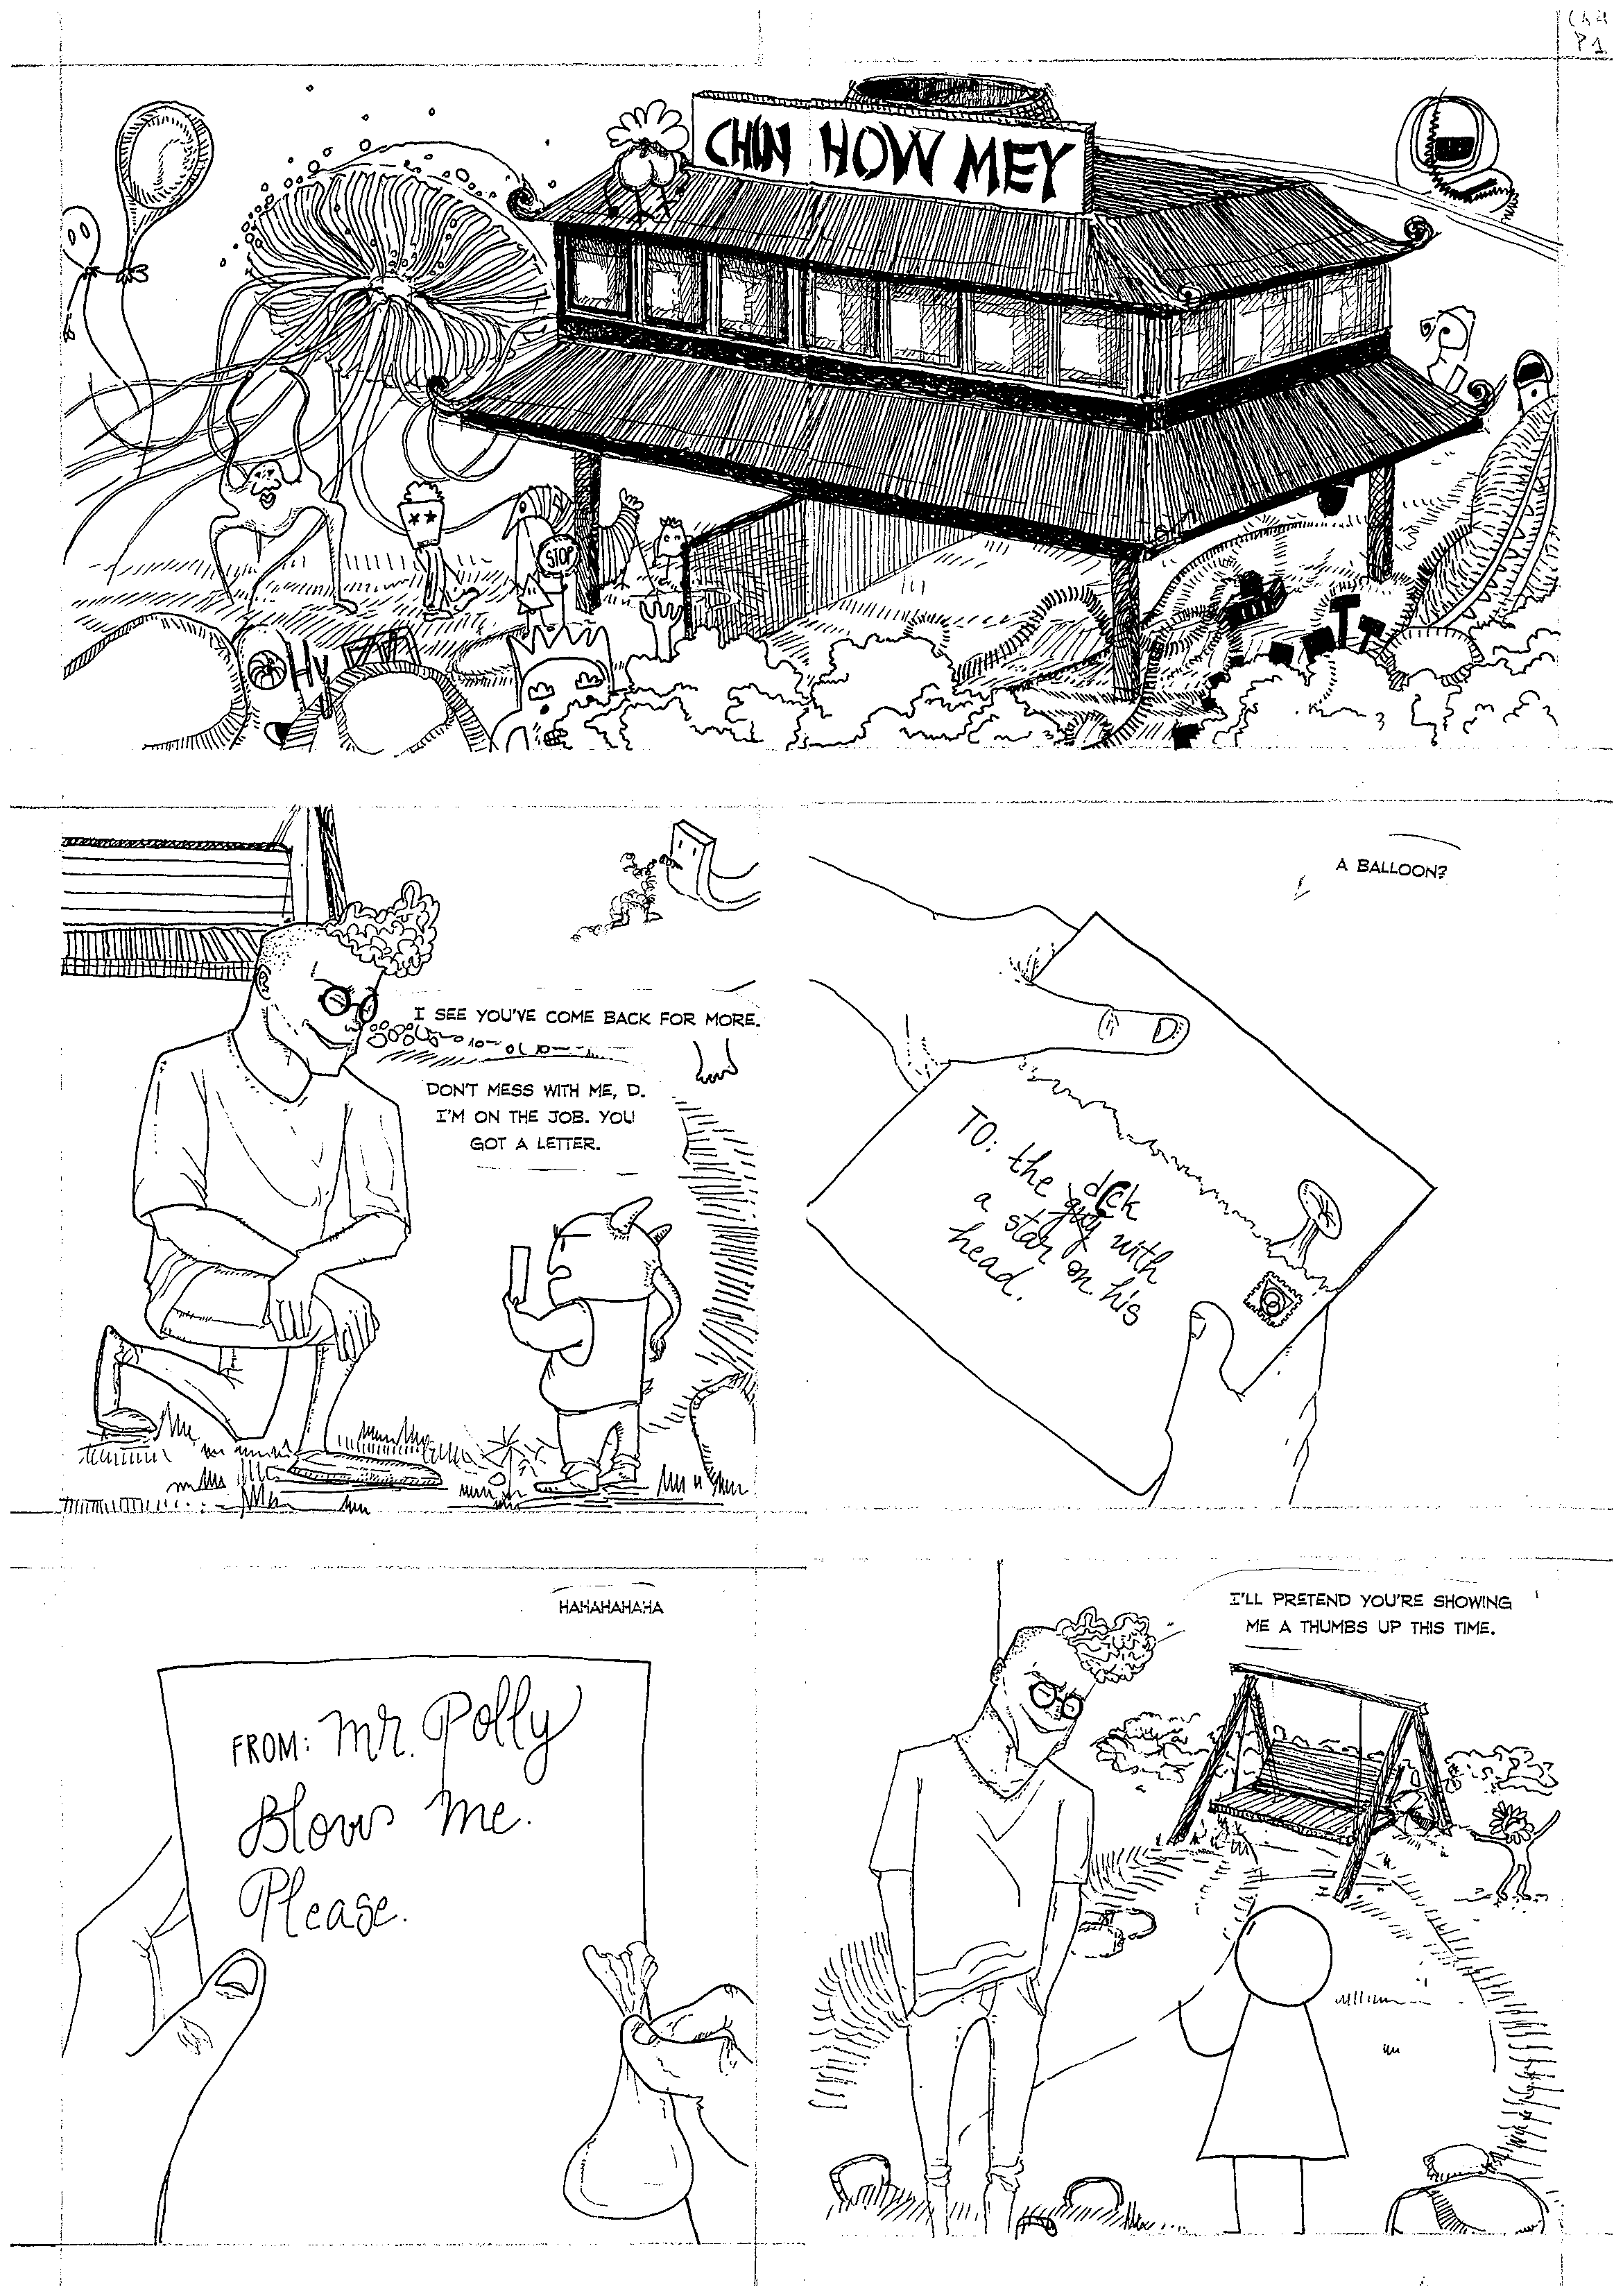 Ch4
P1
CHIN HOW MEY
STOP
I SEE YOU'VE COME BACK FOR MORE.
DON'T MESS WITH ME, D.
I'M ON THE JOB. YOU
GOT A LETTER.
A BALLOON?
TO: the guy dick with
a star on his
head.
HAHAHAHAHA
FROM: Mr. Polly
Blow me.
Please.
I'LL PRETEND YOU'RE SHOWING
ME A THUMBS UP THIS TIME.